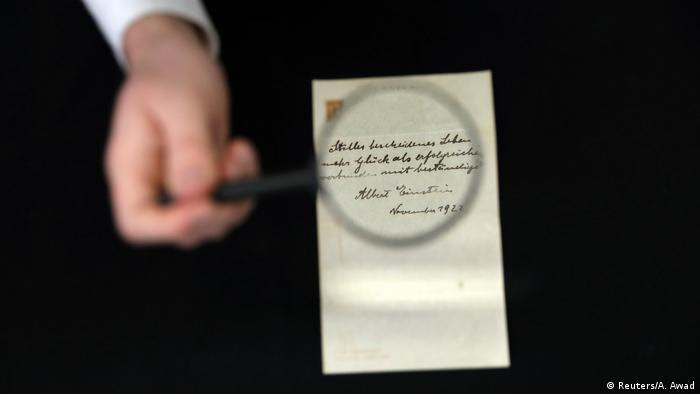 Stilles bescheidenes Leben
mehr Glück als erfolgreiche
verbunden mit beständige
Albert Einstein
November 1922
©Reuters/A. Awad